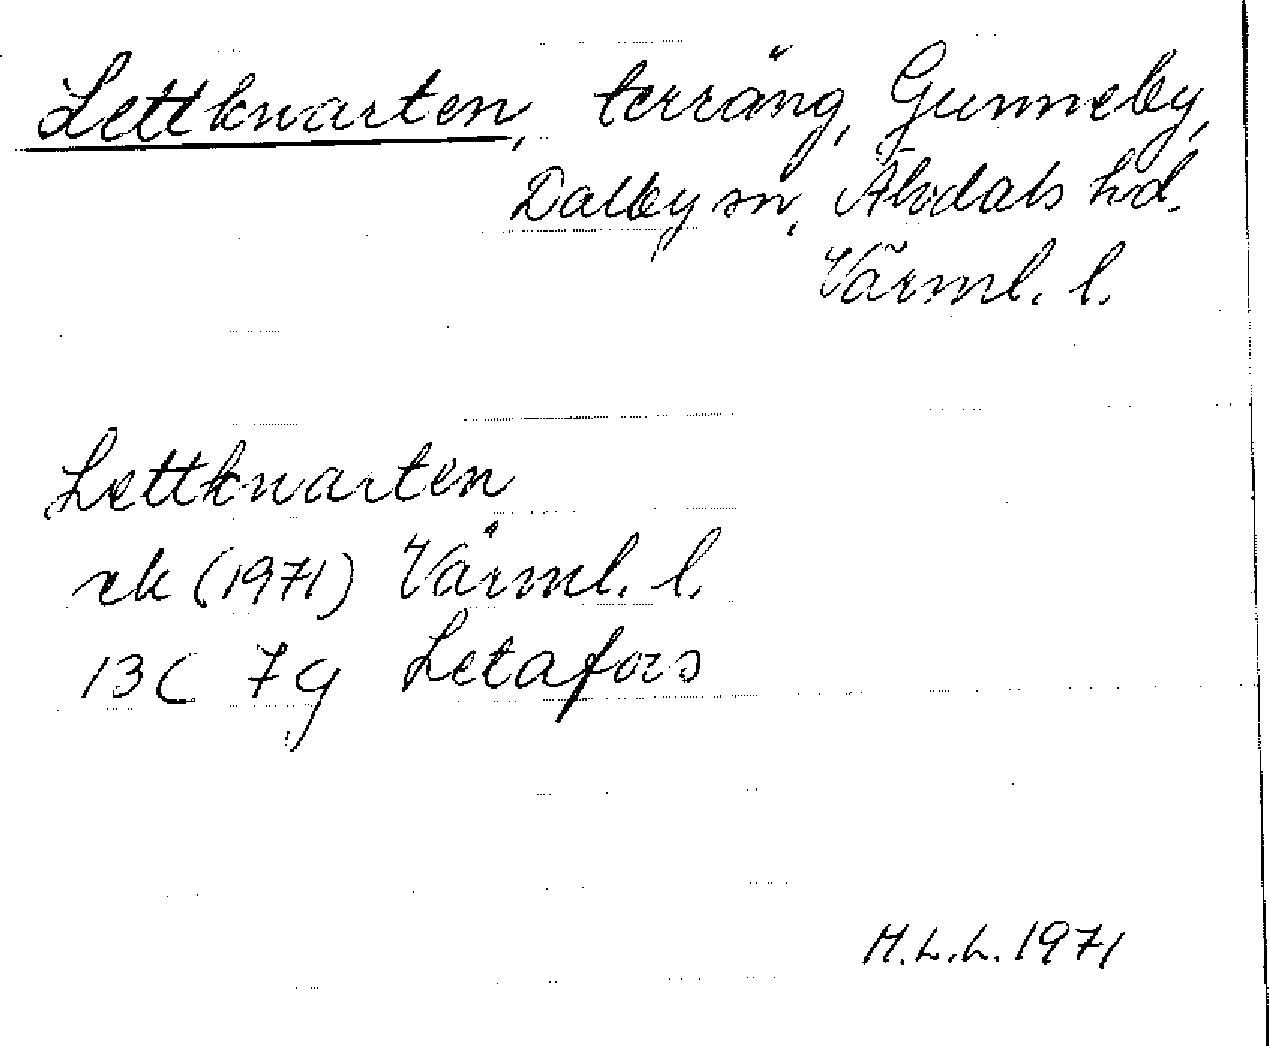 Lettkvarten, terräng, Gunneby,
Dalby sn, Älvdals hd.
Värml. l.
Lettkvarten
rk (1971) Värml. l.
13C 7g Letafors
M.L.L. 1971